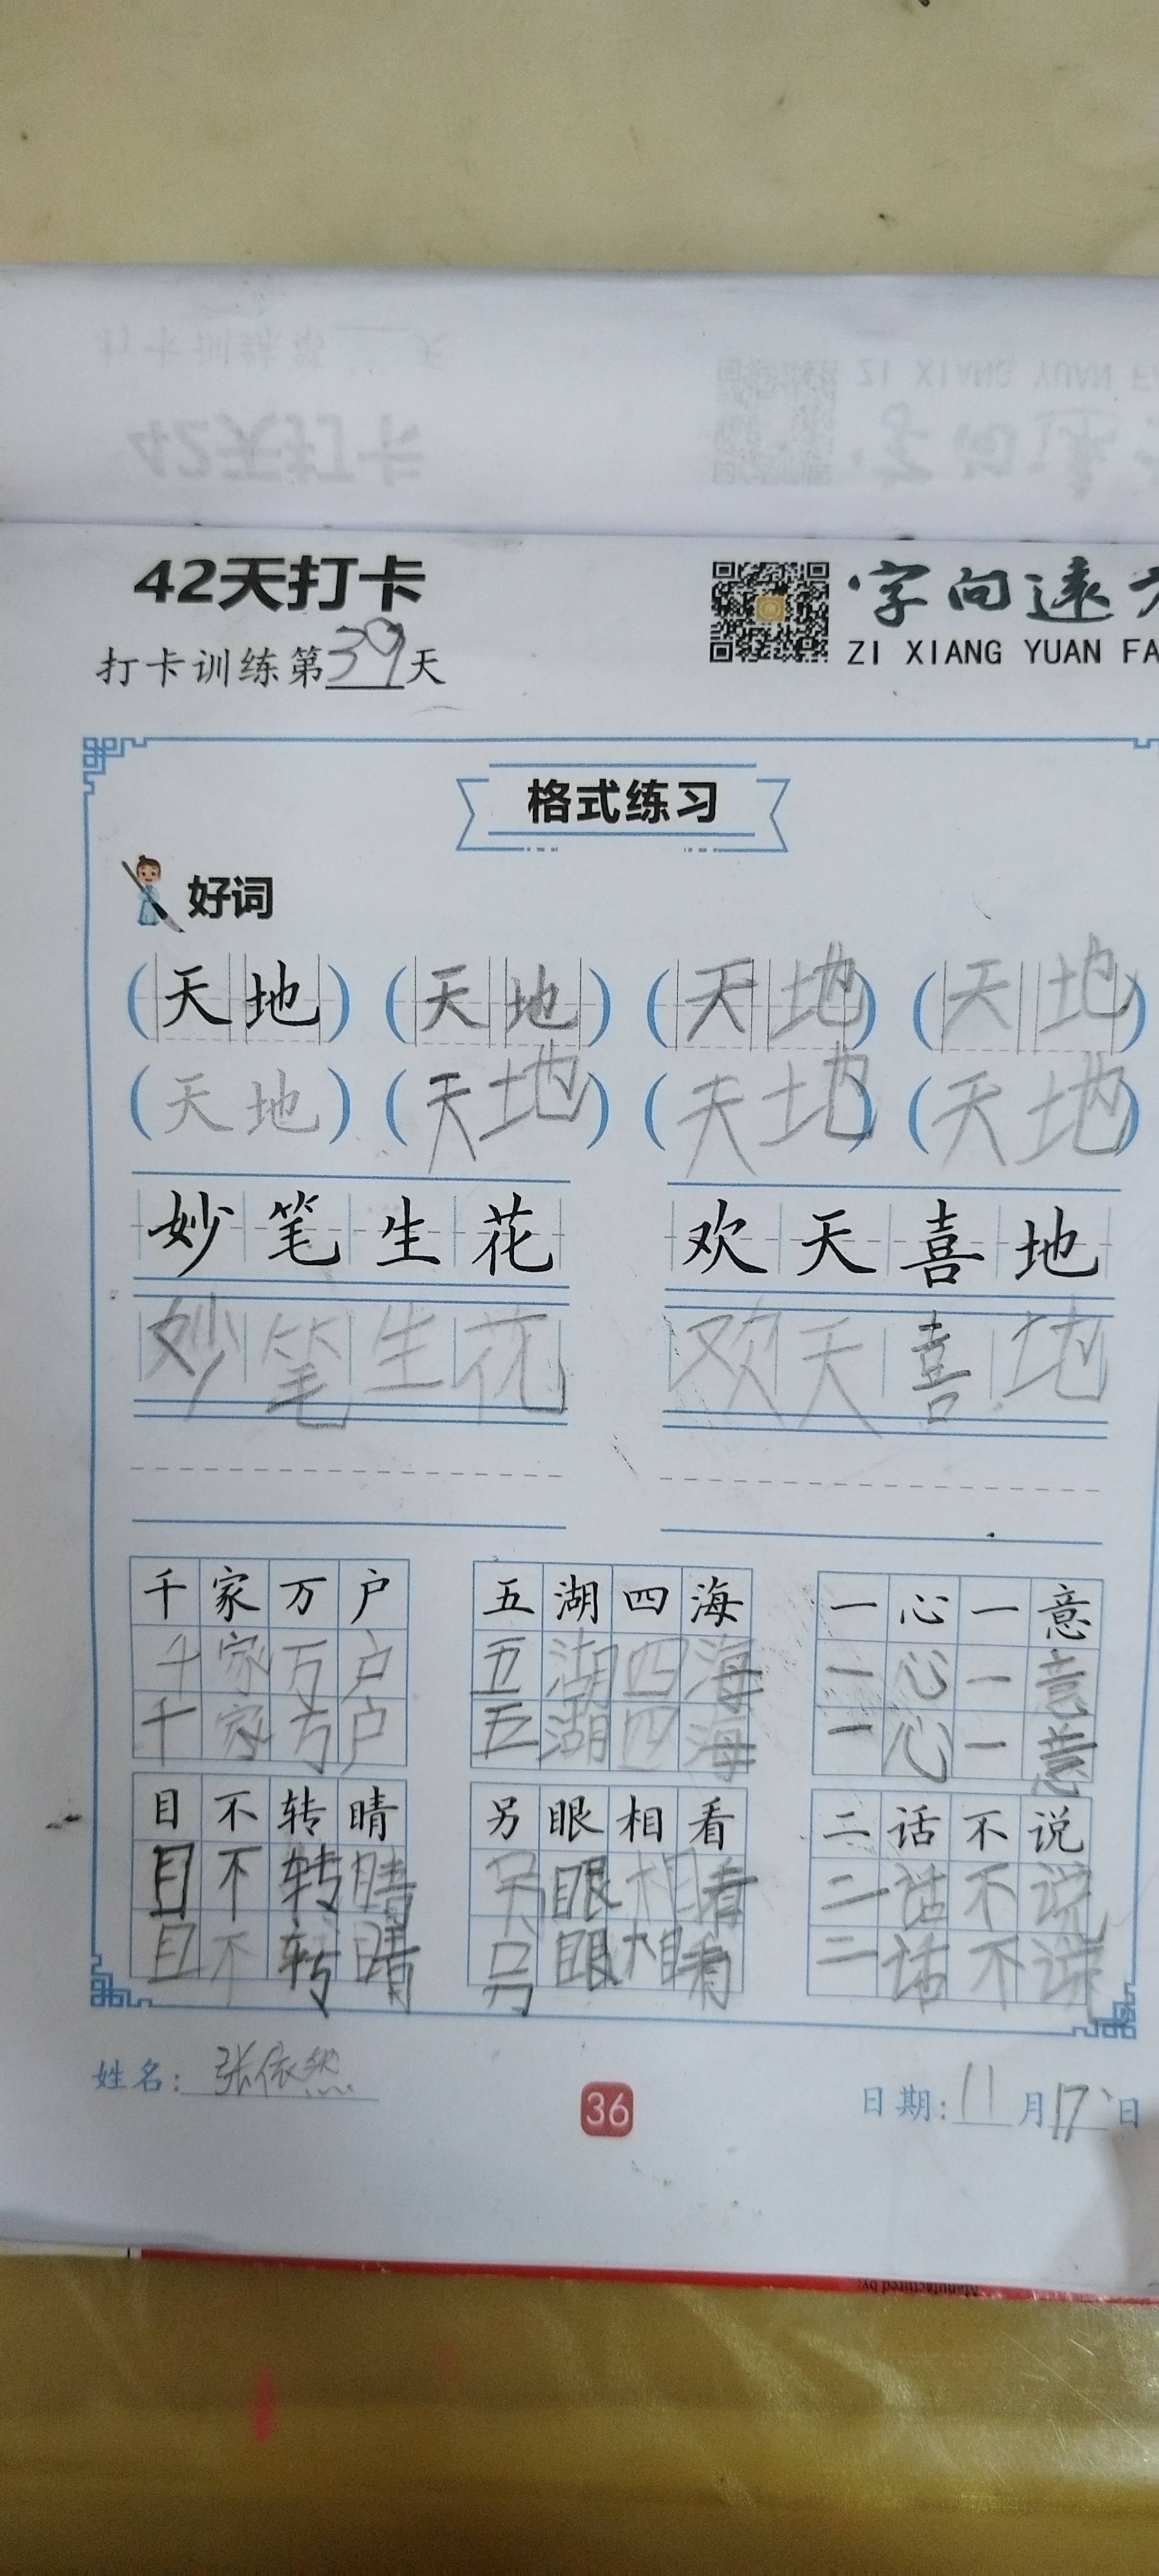 42天打卡
字向远
ZI XIANG YUAN FA
打卡训练第39天
格式练习
好词
(天地) (天地) (天地) (天地)
(天地) (天地) (天地) (天地)
妙笔生花 欢天喜地
妙笔生花 欢天喜地
千家万户 五湖四海 一心一意
千家万户 五湖四海 一心一意
千家万户 五湖四海 一心一意
目不转睛 另眼相看 二话不说
目不转睛 另眼相看 二话不说
目不转睛 另眼相看 二话不说
姓名: 张依然
36
日期: 11月17日
Manufactured by: